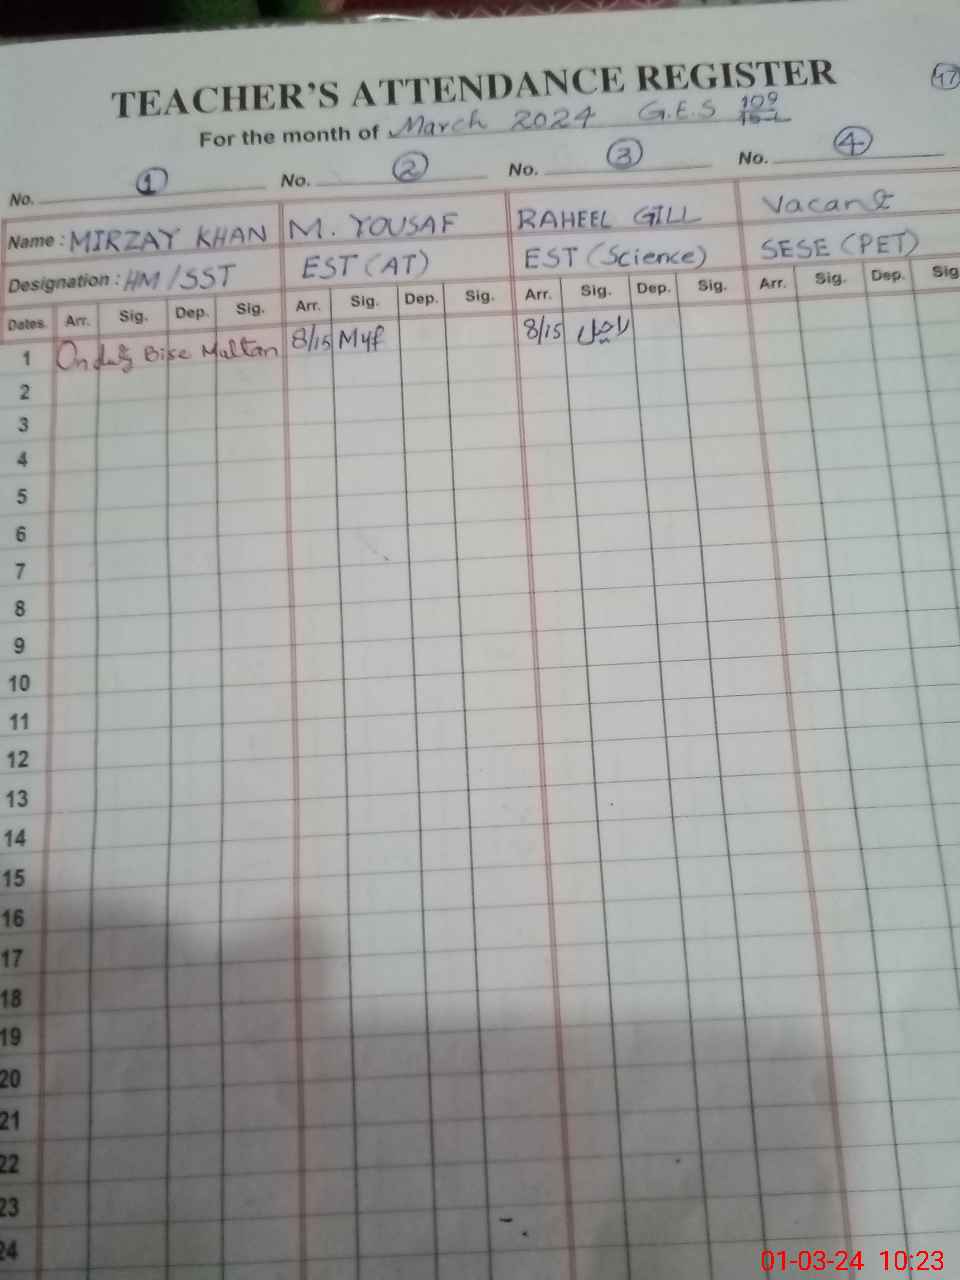 TEACHER'S ATTENDANCE REGISTER
47
For the month of March 2024 G.E.S 109/15-L
No. 1 No. 2 No. 3 No. 4
Name : MIRZAY KHAN M. YOUSAF RAHEEL GILL Vacant
Designation : HM/SST EST (AT) EST (Science) SESE (PET)
Dates Arr. Sig. Dep. Sig. Arr. Sig. Dep. Sig. Arr. Sig. Dep. Sig. Arr. Sig. Dep. Sig
1 On duty Bise Multan 8/15 Myf 8/15 راحیل
2
3
4
5
6
7
8
9
10
11
12
13
14
15
16
17
18
19
20
21
22
23
24
01-03-24 10:23